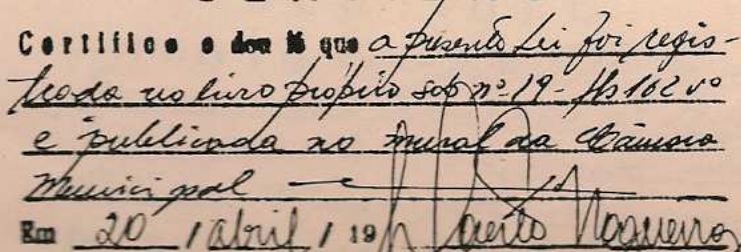 Certifico e dou fé que a presente Lei foi regis-
trada no livro próprio sob nº 19 - fls 162 vº
e publicada no mural da Câmara
Municipal
Em 20 / abril / 19 Nogueira